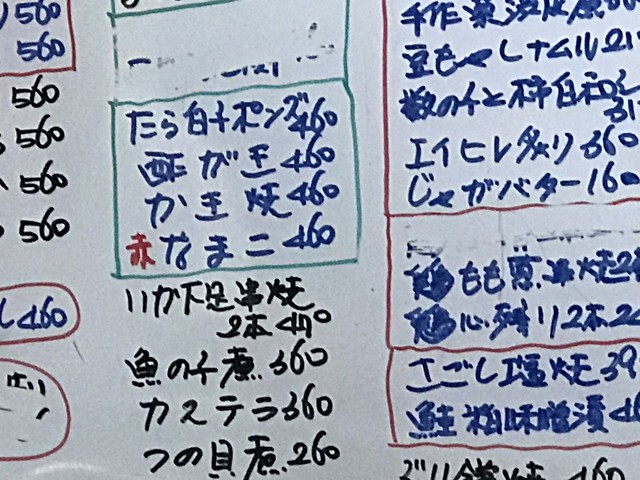 560
560
560
560
560
560
460
たら白子ポンズ460
酢がき460
かき焼460
赤なまこ460
いか下足串焼
2本410
魚の子煮360
カステラ360
つの貝煮260
豆もやしナムル
数の子と柿白和え
エイヒレ炙り360
じゃがバター160
鶏もも煮串焼
鶏心残り2本
さごし塩焼
鮭粕味噌漬
ぶり鎌焼460